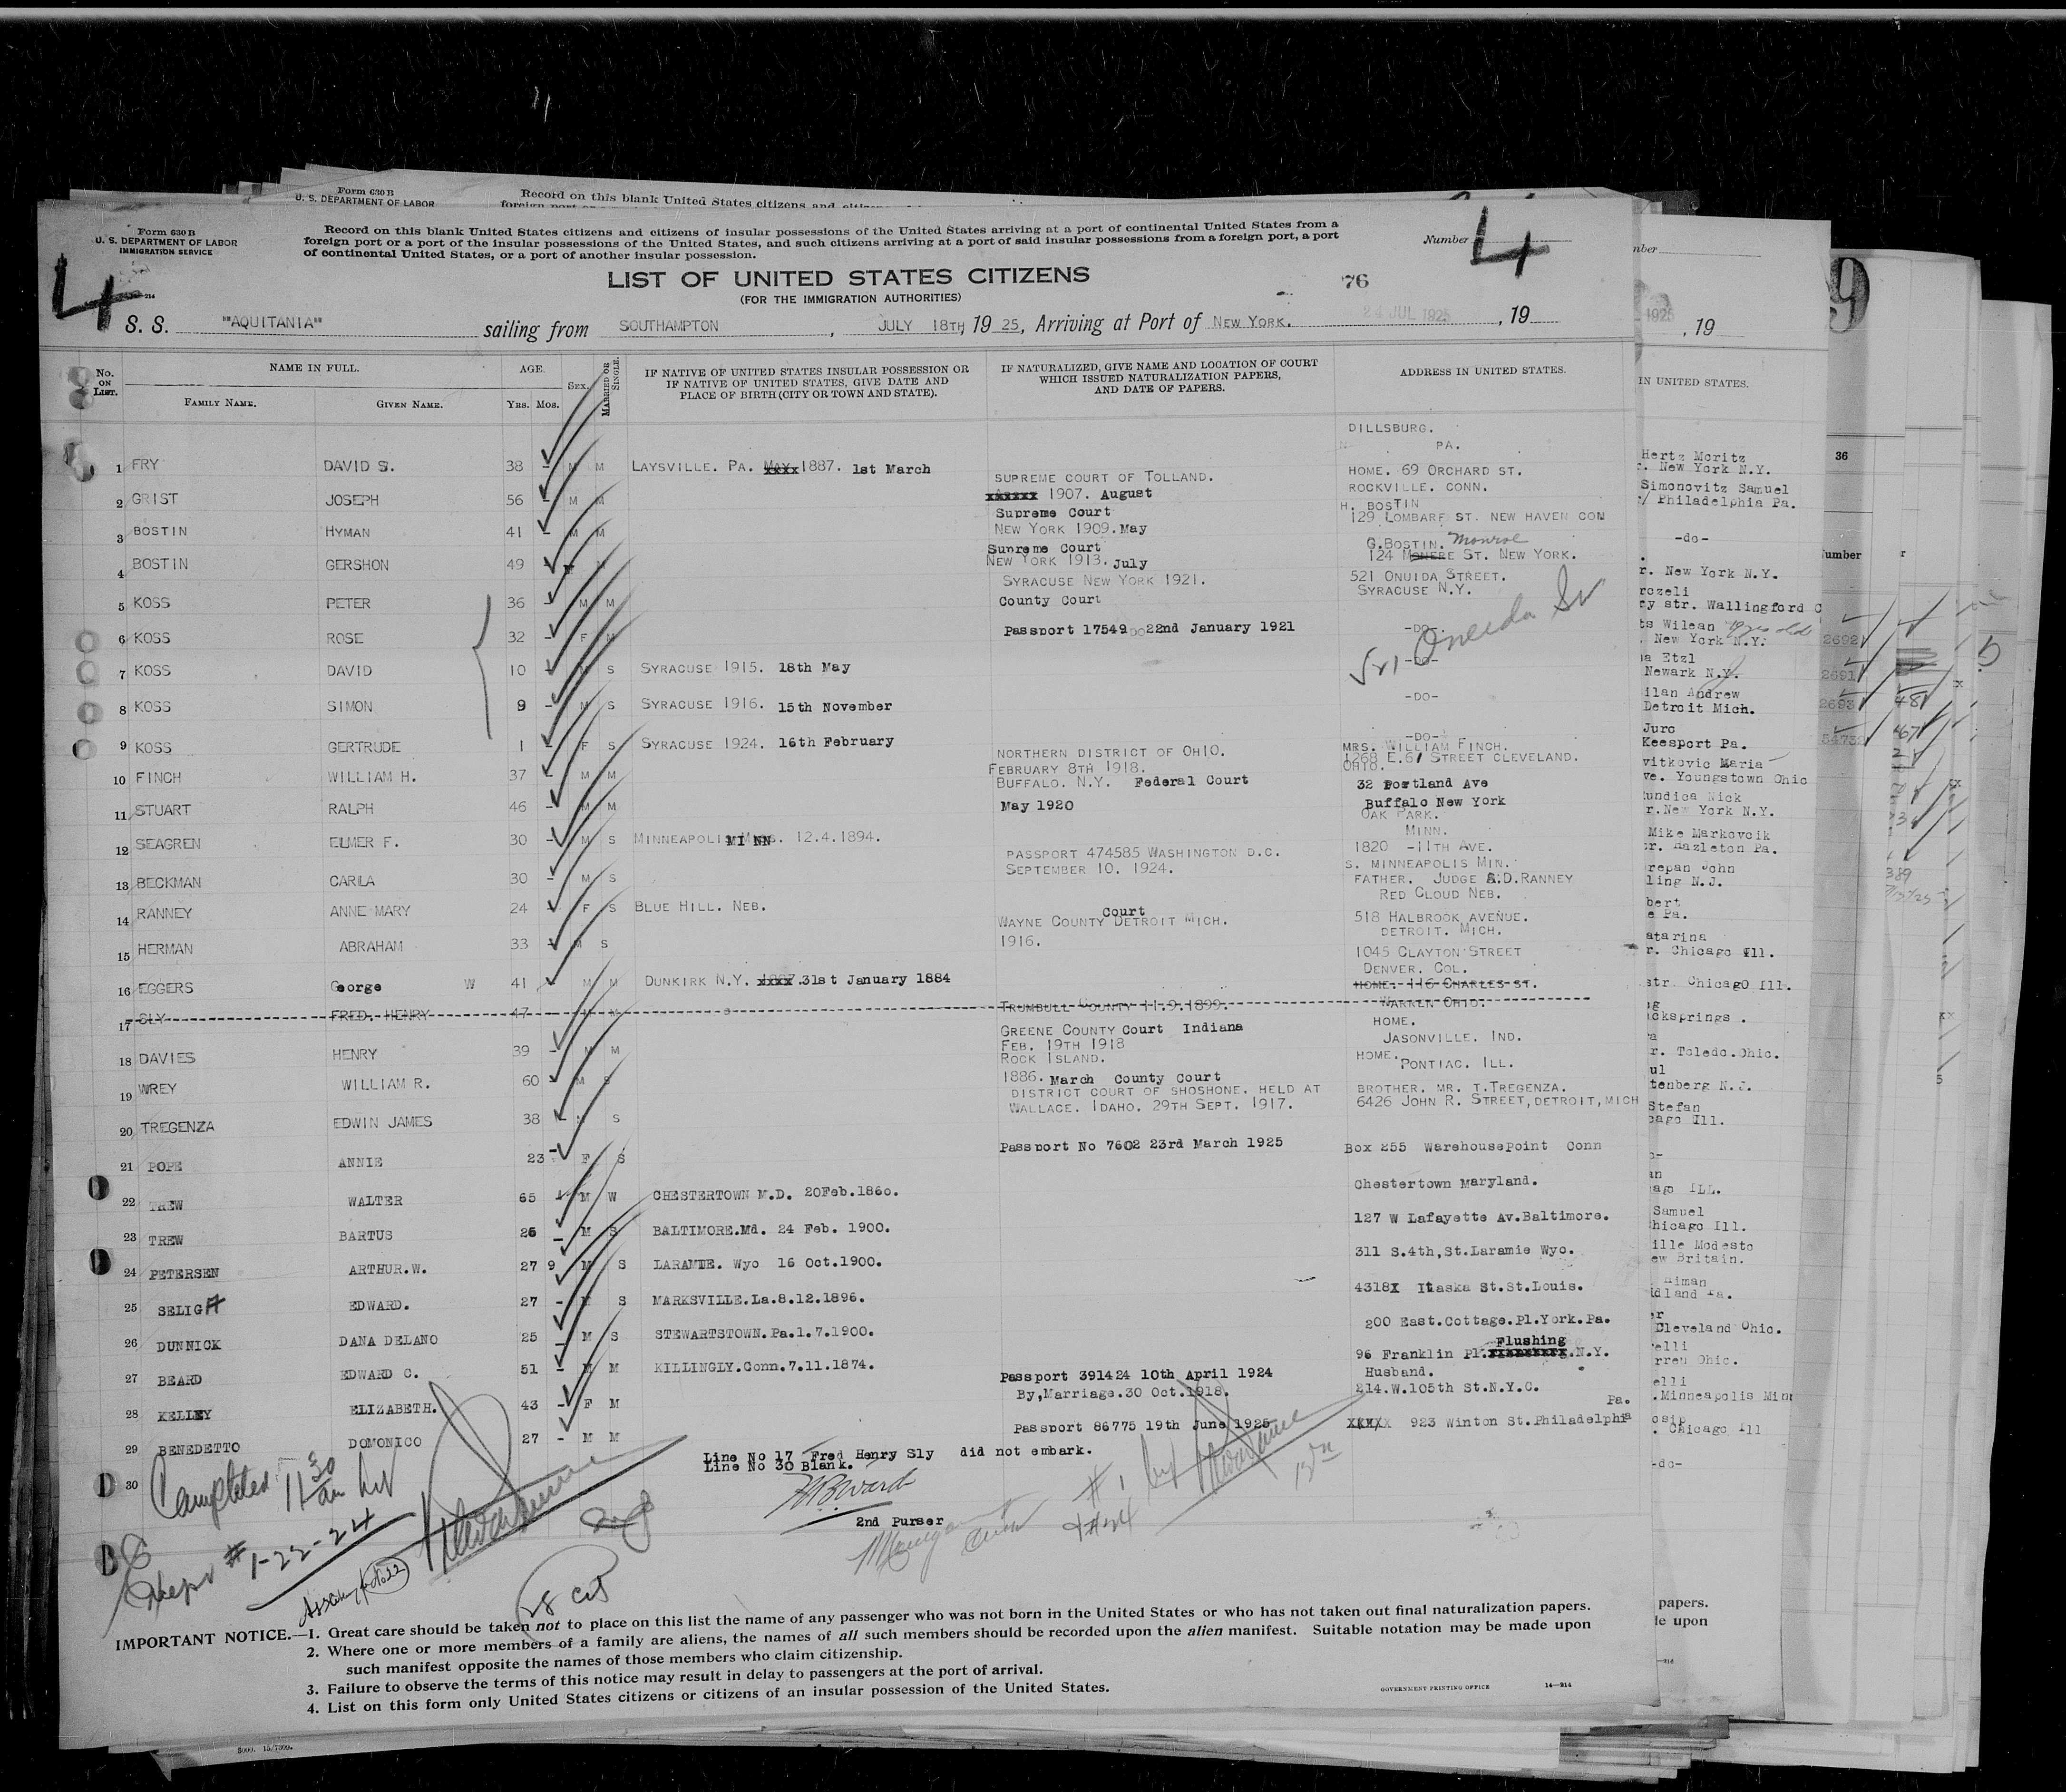 Form 630 B
U. S. DEPARTMENT OF LABOR
Record on this blank United States citizens and
Form 630 B
U. S. DEPARTMENT OF LABOR
IMMIGRATION SERVICE
Record on this blank United States citizens and citizens of insular possessions of the United States arriving at a port of continental United States from a
foreign port or a port of the insular possessions of the United States, and such citizens arriving at a port of said insular possessions from a foreign port, a port
of continental United States, or a port of another insular possession.
Number 4
4
LIST OF UNITED STATES CITIZENS
(FOR THE IMMIGRATION AUTHORITIES)
76
S. S. "AQUITANIA" sailing from SOUTHAMPTON, JULY 18TH, 1925, Arriving at Port of NEW YORK. 24 JUL 1925, 19
No. ON LIST. NAME IN FULL. FAMILY NAME. GIVEN NAME. AGE. YRS. MOS. SEX. MARRIED OR SINGLE. IF NATIVE OF UNITED STATES INSULAR POSSESSION OR IF NATIVE OF UNITED STATES, GIVE DATE AND PLACE OF BIRTH (CITY OR TOWN AND STATE). IF NATURALIZED, GIVE NAME AND LOCATION OF COURT WHICH ISSUED NATURALIZATION PAPERS, AND DATE OF PAPERS. ADDRESS IN UNITED STATES.
1 FRY DAVID S. 38 - M M LAYSVILLE. PA. 1887. 1st March DILLSBURG. PA.
2 GRIST JOSEPH 56 - M M SUPREME COURT OF TOLLAND. 1907. August HOME. 69 ORCHARD ST. ROCKVILLE. CONN.
3 BOSTIN HYMAN 41 - M M Supreme Court NEW YORK 1909. May H. BOSTIN 129 LOMBARF ST. NEW HAVEN CON
4 BOSTIN GERSHON 49 M M Supreme Court NEW YORK 1913. July G. BOSTIN. Monroe 124 ST. NEW YORK.
5 KOSS PETER 36 - M M SYRACUSE NEW YORK 1921. County Court 521 ONUIDA STREET. SYRACUSE N.Y.
6 KOSS ROSE 32 - F M Passport 17549 DO 22nd January 1921 -DO-
521 Oneida St
7 KOSS DAVID 10 - M S SYRACUSE 1915. 18th May -DO-
8 KOSS SIMON 9 - M S SYRACUSE 1916. 15th November -DO-
9 KOSS GERTRUDE 1 - F S SYRACUSE 1924. 16th February -DO-
10 FINCH WILLIAM H. 37 - M M NORTHERN DISTRICT OF OHIO. FEBRUARY 8TH 1918. MRS. WILLIAM FINCH. 1268 E.61 STREET CLEVELAND. OHIO.
11 STUART RALPH 46 - M M BUFFALO. N.Y. Federal Court May 1920 32 Portland Ave Buffalo New York
12 SEAGREN ELMER F. 30 - M S MINNEAPOLIS MINN. 12.4.1894. OAK PARK. MINN.
13 BECKMAN CARLA 30 - M S PASSPORT 474585 WASHINGTON D.C. SEPTEMBER 10. 1924. 1820 -11TH AVE. S. MINNEAPOLIS MIN.
14 RANNEY ANNE MARY 24 F S BLUE HILL. NEB. FATHER. JUDGE S.D.RANNEY RED CLOUD NEB.
15 HERMAN ABRAHAM 33 - M S WAYNE COUNTY Court DETROIT MICH. 1916. 518 HALBROOK AVENUE. DETROIT. MICH.
16 EGGERS George W 41 M M DUNKIRK N.Y. 31st January 1884 1045 CLAYTON STREET DENVER. COL.
17 SLY FRED. HENRY 47 M M TRUMBULL COUNTY 11.9.1899. HOME. 116 CHARLES ST. WARREN OHIO.
18 DAVIES HENRY 39 - M M GREENE COUNTY Court Indiana FEB. 19TH 1918 HOME. JASONVILLE. IND.
19 WREY WILLIAM R. 60 M S ROCK ISLAND. 1886. March County Court HOME. PONTIAC. ILL.
20 TREGENZA EDWIN JAMES 38 - M S DISTRICT COURT OF SHOSHONE. HELD AT WALLACE. IDAHO. 29TH SEPT. 1917. BROTHER. MR. T.TREGENZA. 6426 JOHN R. STREET, DETROIT, MICH
21 POPE ANNIE 23 - F S Passport No 7602 23rd March 1925 Box 255 WarehousePoint Conn
22 TREW WALTER 65 M W CHESTERTOWN M.D. 20Feb.1860. Chestertown Maryland.
23 TREW BARTUS 26 - M S BALTIMORE.Md. 24 Feb. 1900. 127 W Lafayette Av.Baltimore.
24 PETERSEN ARTHUR.W. 27 9 M S LARAMIE. Wyo 16 Oct.1900. 311 S.4th,St.Laramie Wyo.
25 SELIGA EDWARD. 27 - M S MARKSVILLE.La.8.12.1896. 4318X Itaska St.St.Louis.
26 DUNNICK DANA DELANO 25 - M S STEWARTSTOWN.Pa.1.7.1900. 200 East.Cottage.Pl.York.Pa.
27 BEARD EDWARD C. 51 - M M KILLINGLY.Conn.7.11.1874. 96 Franklin Pl. Flushing.N.Y.
28 KELLEY ELIZABETH. 43 - F M Passport 391424 10th April 1924 By,Marriage.30 Oct.1918. Husband. 214.W.105th St.N.Y.C.
29 BENEDETTO DOMONICO 27 - M M Passport 86775 19th June 1925 923 Winton St.Philadelphia Pa.
30
Line No 17 Fred Henry Sly did not embark.
Line No 30 Blank.
2nd Purser
Completed 11 30 am
#1-22-24
# 1
28 cit
IMPORTANT NOTICE.—1. Great care should be taken not to place on this list the name of any passenger who was not born in the United States or who has not taken out final naturalization papers.
2. Where one or more members of a family are aliens, the names of all such members should be recorded upon the alien manifest. Suitable notation may be made upon
such manifest opposite the names of those members who claim citizenship.
3. Failure to observe the terms of this notice may result in delay to passengers at the port of arrival.
4. List on this form only United States citizens or citizens of an insular possession of the United States.
GOVERNMENT PRINTING OFFICE 14—214
1925, 19
IN UNITED STATES.
Hertz Moritz
New York N.Y.
Simonovitz Samuel
Philadelphia Pa.
-do-
New York N.Y.
str. Wallingford C
New York N.Y.
Etzl
Newark N.Y.
Andrew
Detroit Mich.
Keesport Pa.
Maria
Youngstown Ohio
Nick
New York N.Y.
Mike Markovcik
Hazleton Pa.
John
N.J.
Pa.
Chicago Ill.
str. Chicago Ill.
Toledo.Ohio.
N.J.
Stefan
Ill.
Samuel
Chicago Ill.
Modesto
Britain.
Cleveland Ohio.
Ohio.
Minneapolis Minn
Chicago Ill
-do-
papers.
upon
36
2692
2691
2693
5473
48
67
389
9
5000. 15/7309.